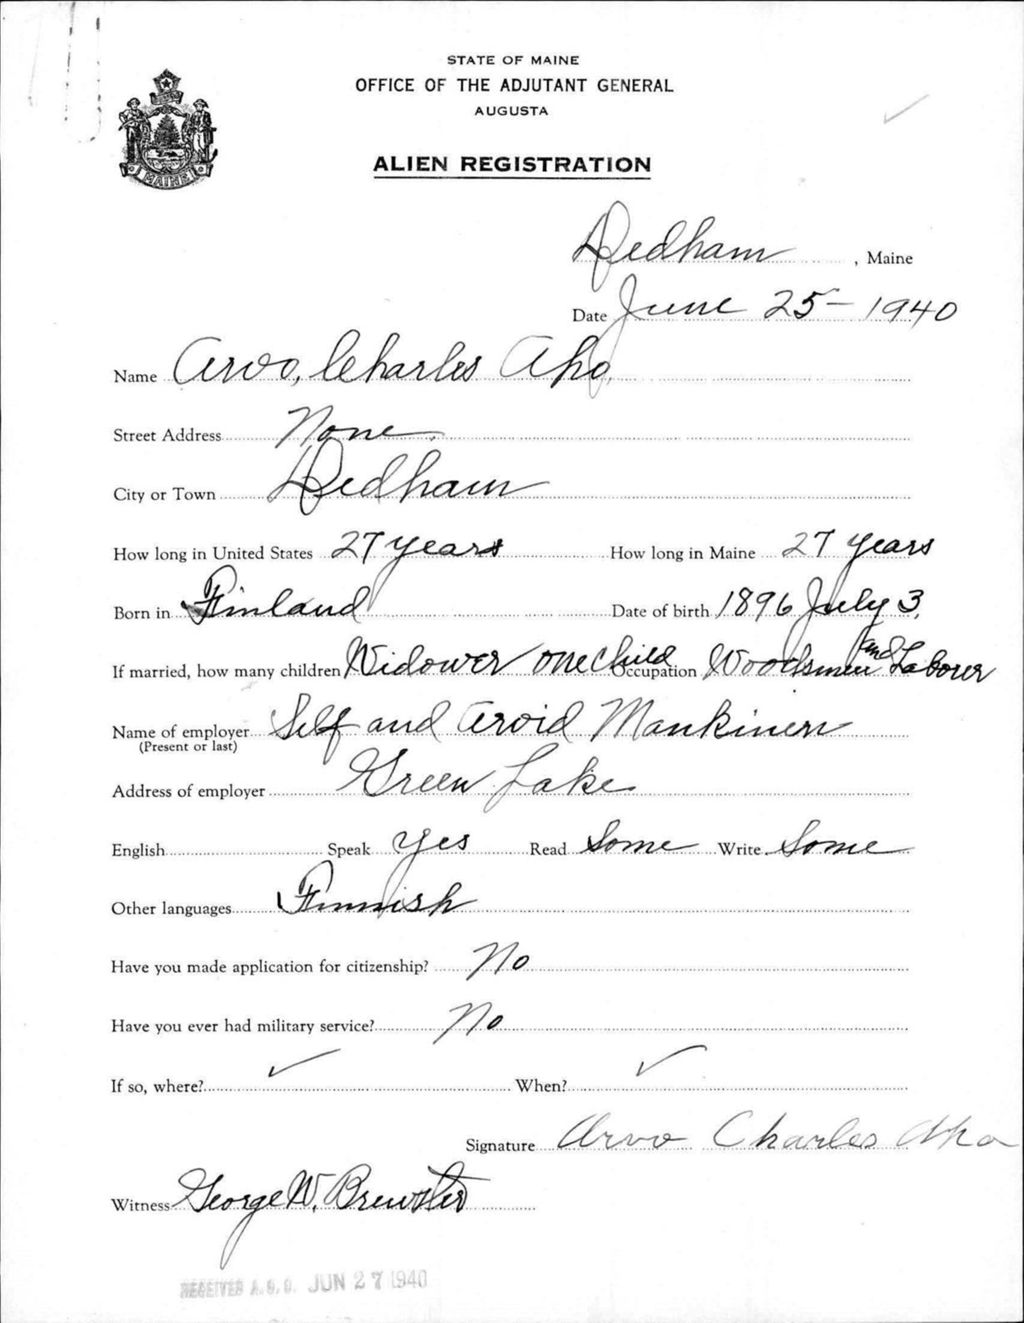 STATE OF MAINE
OFFICE OF THE ADJUTANT GENERAL
AUGUSTA
ALIEN REGISTRATION
MAINE
Dedham, Maine
Date June 25 - 1940
Name Arvo, Charles Aho,
Street Address None.
City or Town Dedham
How long in United States 27 years How long in Maine 27 years
Born in Finland Date of birth 1896 July 3,
If married, how many children Widower one Child Occupation Woodsmen and Laborer
Name of employer Self and Arvid Mankinen
(Present or last)
Address of employer Green Lake
English Speak Yes Read Some Write Some
Other languages Finnish
Have you made application for citizenship? No
Have you ever had military service? No
If so, where? ✓ When? ✓
Signature Arvo Charles Aho
Witness George W. Brewster
RECEIVED A.G.O. JUN 27 1940